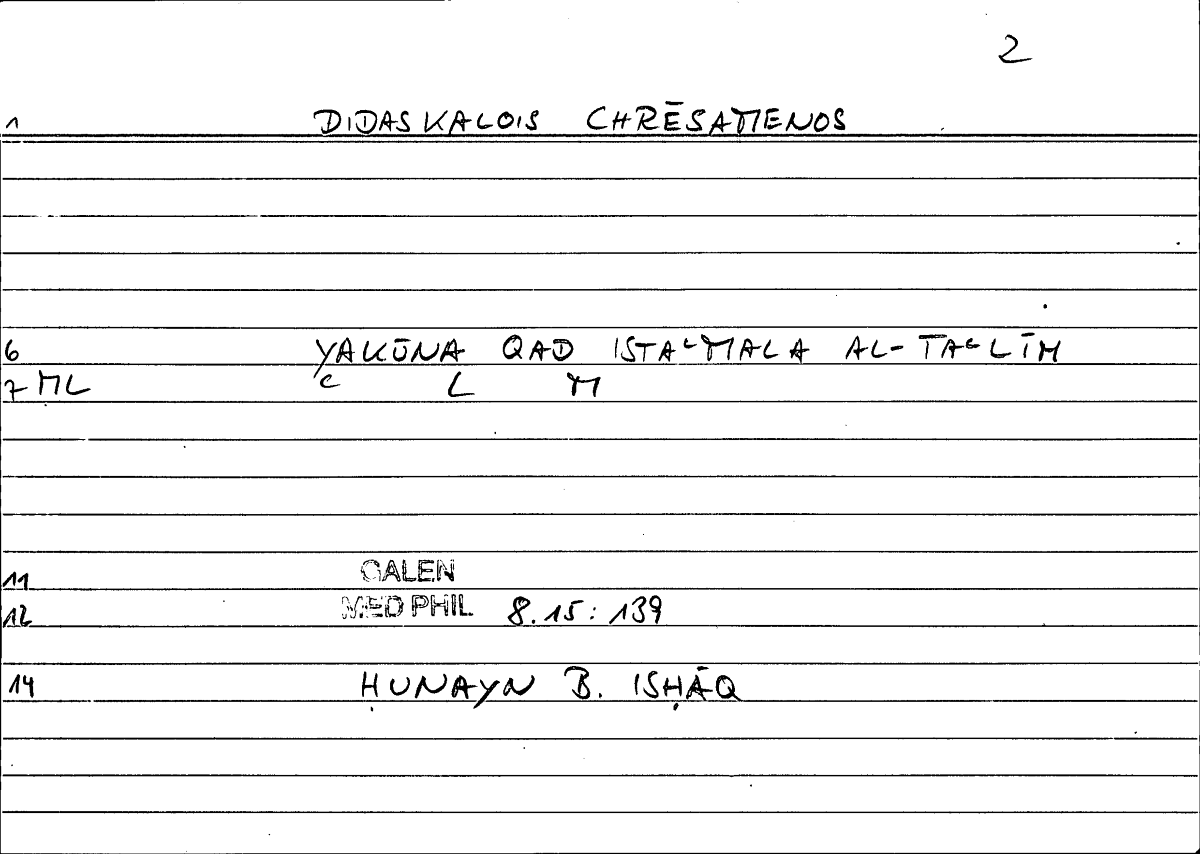 2
1 DIDASKALOIS CHRĒSAMENOS
6 YAKŪNA QAD ISTAʿMALA AL-TAʿLĪM
7 ML ʿ L M
11 GALEN
12 MED PHIL 8.15: 139
14 ḤUNAYN B. ISḤĀQ